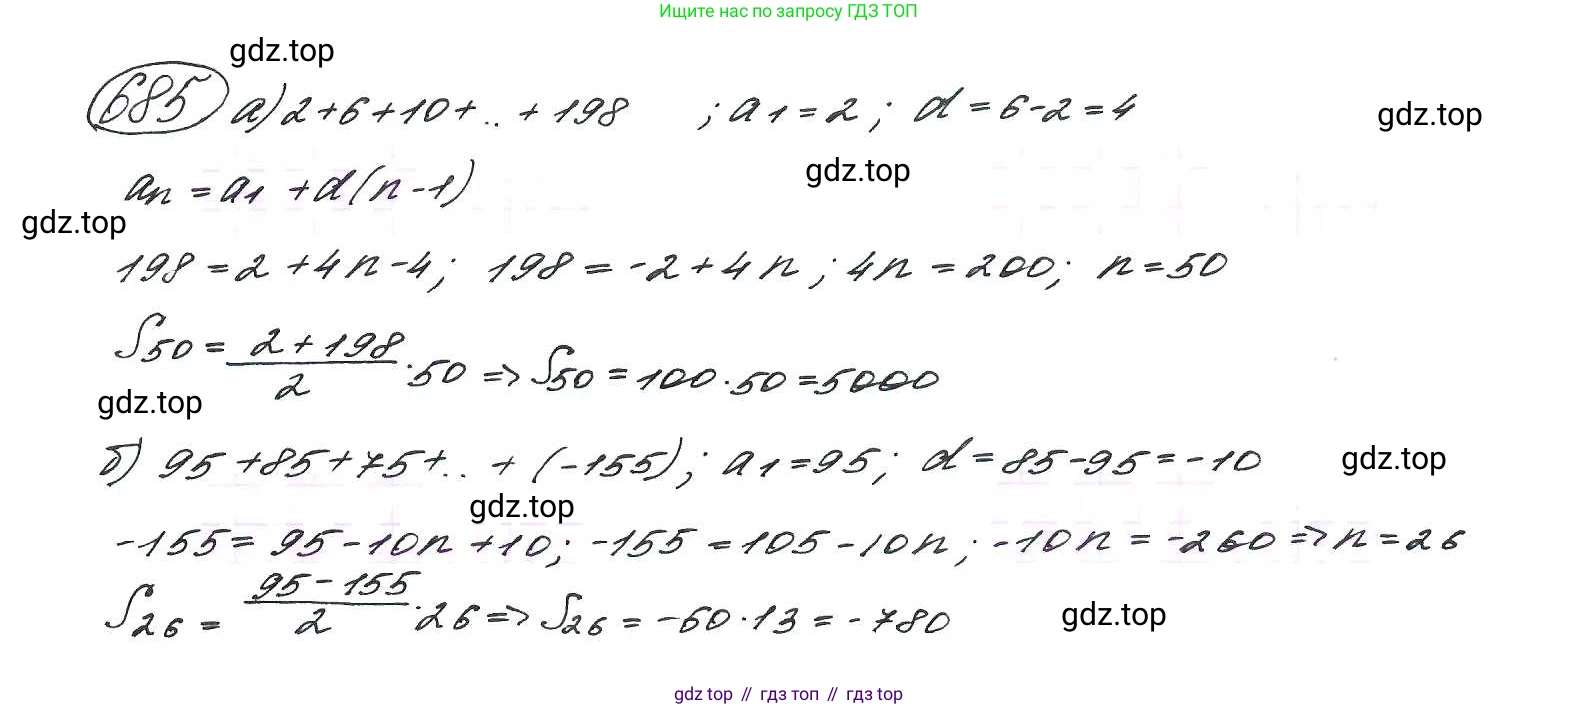 Ищите нас по запросу ГДЗ ТОП
gdz.top
685 а) 2+6+10+..+198 ; a₁=2; d=6-2=4
gdz.top
gdz.top
aₙ=a₁+d(n-1)
gdz.top
198=2+4n-4; 198=-2+4n; 4n=200; n=50
S₅₀=(2+198)/2·50 => S₅₀=100·50=5000
gdz.top
б) 95+85+75+..+(-155); a₁=95; d=85-95=-10
gdz.top
gdz.top
-155=95-10n+10; -155=105-10n; -10n=-260=>n=26
S₂₆=(95-155)/2·26=> S₂₆=-60·13=-780
gdz.top
gdz top // гдз топ // гдз top